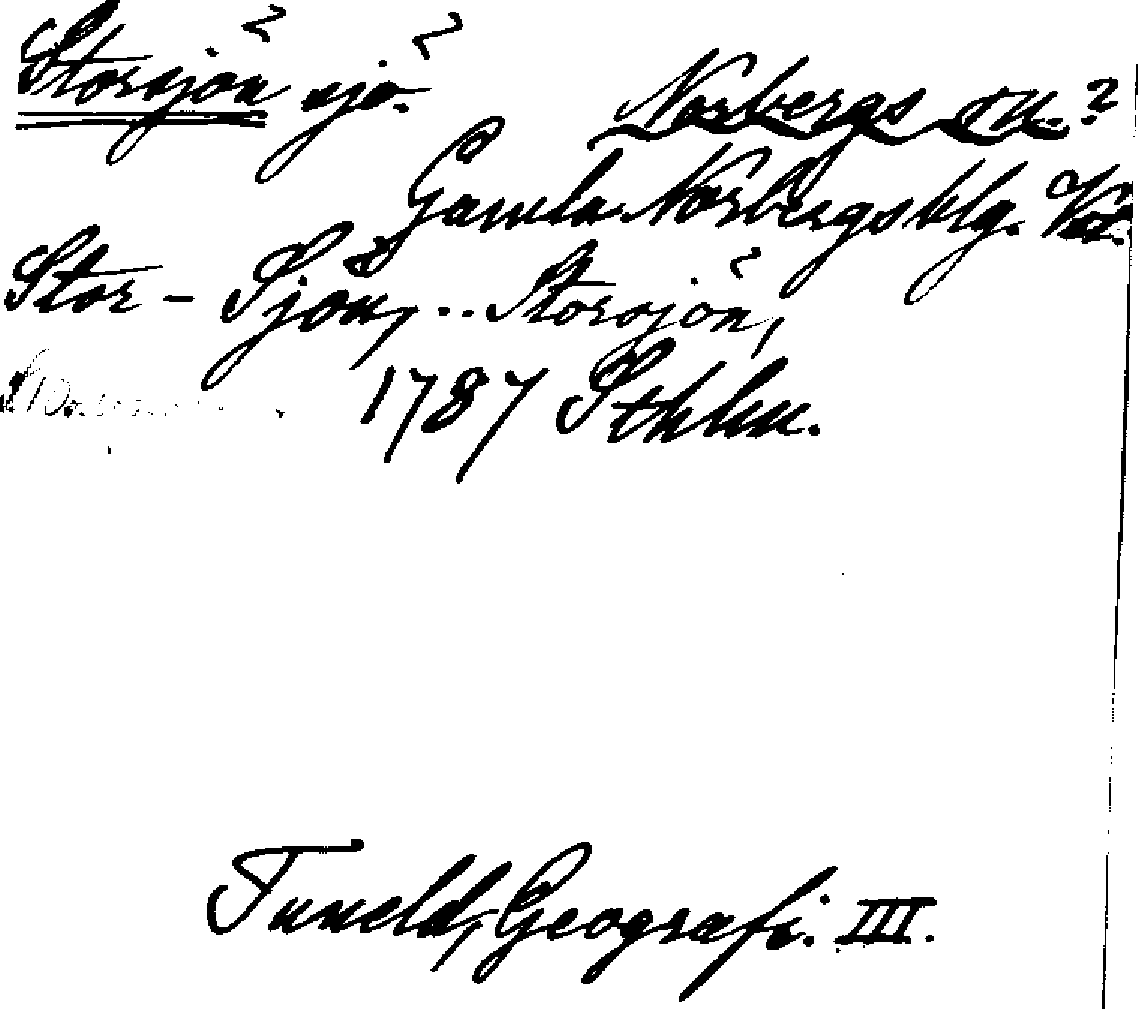 Storsjön sjö.
Norbergs sn.?
Gamla Norbergs blg. Vstm.
Stor-Sjön, .. Storsjön,
1787 Sthlm.
Tuneld, Geografi. III.